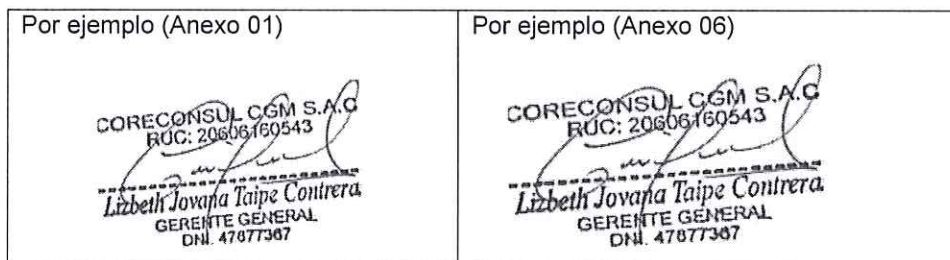 Por ejemplo (Anexo 01)
CORECONSUL CGM S.A.C
RUC: 20606160543
Lizbeth Jovana Taipe Contrera
GERENTE GENERAL
DNI. 47877367
Por ejemplo (Anexo 06)
CORECONSUL CGM S.A.C
RUC: 20606160543
Lizbeth Jovana Taipe Contrera
GERENTE GENERAL
DNI. 47877367